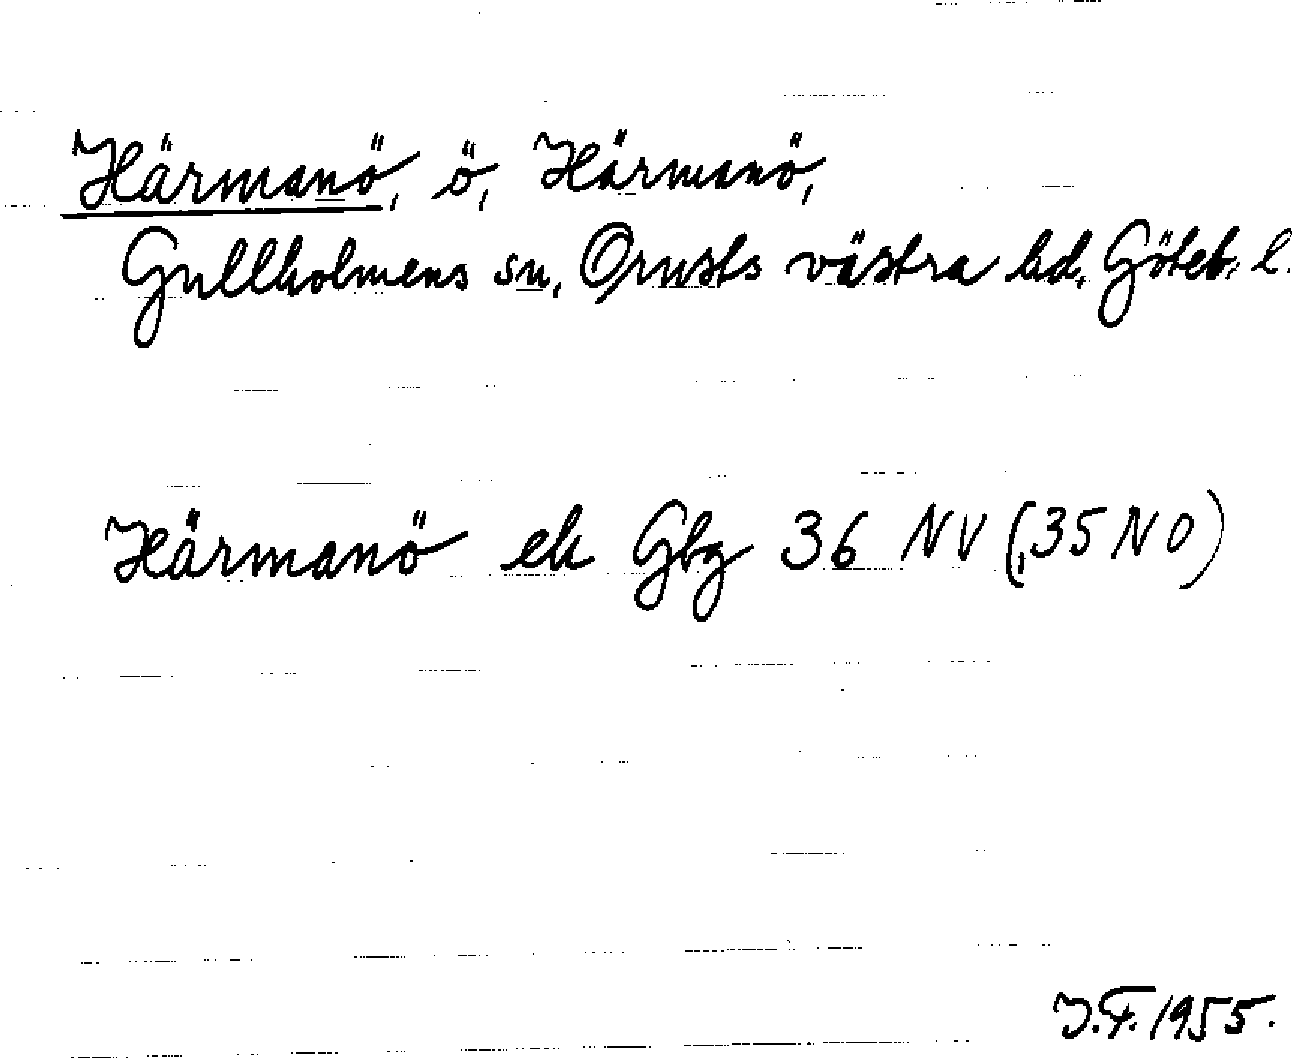 Härmanö, ö, Härmanö,
Gullholmens sn, Orusts västra hd, Göteb. l.
Härmanö ek Gbg 36 NV (35 NO)
J.F. 1955.